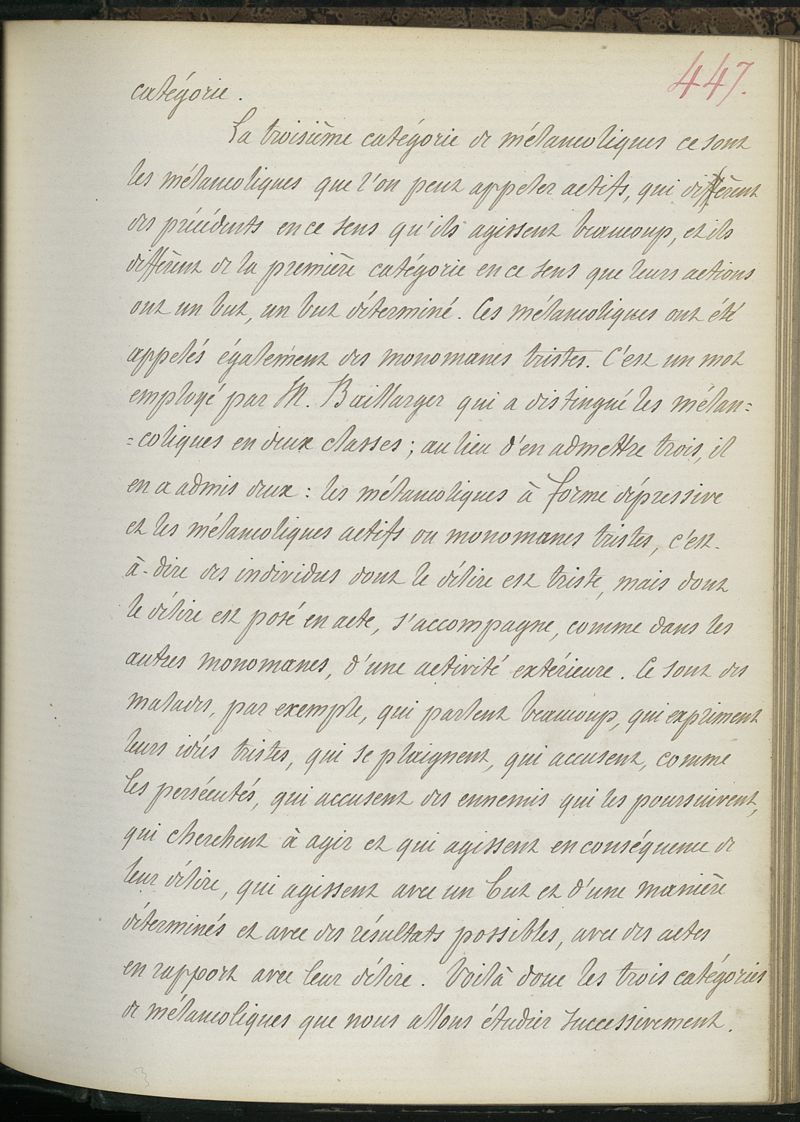 447.
catégorie.
La troisième catégorie de mélancoliques ce sont
les mélancoliques que l'on peut appeler actifs, qui diffèrent
des précédents en ce sens qu'ils agissent beaucoup, et ils
diffèrent de la première catégorie en ce sens que leurs actions
ont un but, un but déterminé. Ces mélancoliques ont été
appelés également des monomanes tristes. C'est un mot
employé par M. Baillarger qui a distingué les mélan=
=coliques en deux classes ; au lieu d'en admettre trois, il
en a admis deux : les mélancoliques à forme dépressive
et les mélancoliques actifs ou monomanes tristes, c'est-
à-dire des individus dont le délire est triste, mais dont
le délire est posé en acte, s'accompagne, comme dans les
autres monomanes, d'une activité extérieure. Ce sont des
malades, par exemple, qui parlent beaucoup, qui expriment
leurs idées tristes, qui se plaignent, qui accusent, comme
les persécutés, qui accusent des ennemis qui les poursuivent,
qui cherchent à agir et qui agissent en conséquence de
leur délire, qui agissent avec un but et d'une manière
déterminés et avec des résultats possibles, avec des actes
en rapport avec leur délire. Voilà donc les trois catégories
de mélancoliques que nous allons étudier successivement.
3